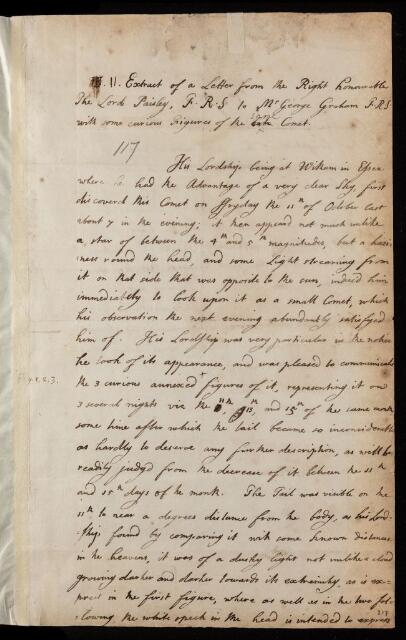 11. Extract of a Letter from the Right honourable
The Lord Paisley, F.R.S to Mr George Graham F.R.S
with some curious Figures of the late Comet.
117
His Lordship being at Witham in Essex
where he had the Advantage of a very clear Sky, first
discovered this Comet on ffryday the 11th of October last
about 7 in the evening; it then appeard not much unlike
a star of between the 4th and 5th magnitudes, but a hazi
ness round the head, and some Light streaming from
it on that side that was opposite to the sun, induced him
immediately to look upon it as a small Comet, which
his observation the next evening abundantly satisfyed
him of. His Lordship was very particular in the notice
he took of its appearance, and was pleased to communicate
the 3 curious annexed figures of it, representing it on
3 several nights viz the 11th, 13th, and 15th of the same month
some time after which the tail became so inconsiderable
as hardly to deserve any further description, as will be
readily judged from the decrease of it between the 11th
and 15th days of the month. The Tail was visible on the
11th to near a degrees distance from the body, as his Lord-
ship found by comparing it with some known distances
in the heavens, it was of a dusky light not unlike a cloud
growing darker and darker towards its extremity, as is ex-
prest in the first figure, where as well as in the two fol-
217
lowing the white speck in the head is intended to express